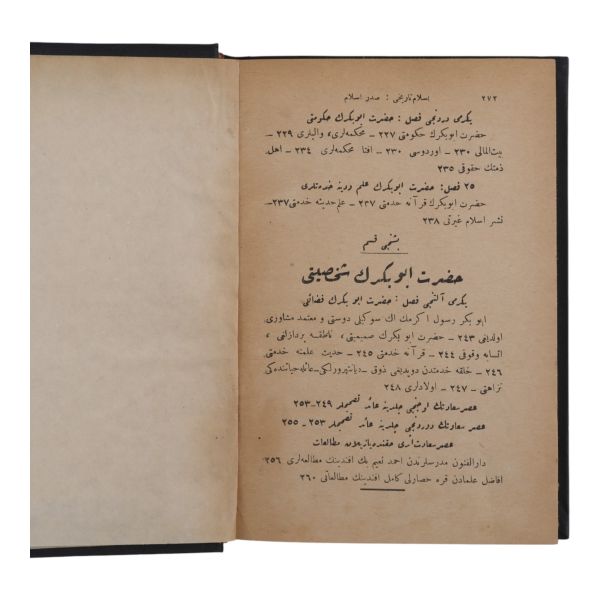 ٢٧٢ اسلام تاریخی : صدر اسلام
یکرمی دردنجی فصل : حضرت ابوبکرك حکومتی
حضرت ابوبکرك حکومتی ٢٢٧ ــ محکمه‌لری، والیلری ٢٢٩ ــ
بیت‌المالی ٢٣٠ ــ اوردوسی ٢٣٠ ــ افتا محکمه‌لری ٢٣٤ ــ اهل
ذمتك حقوقی ٢٣٥
٢٥ فصل : حضرت ابوبکرك علم ودینه خدمتلری
حضرت ابوبکرك قرآنه خدمتی ٢٣٧ ــ علم حدیثه خدمتی ٢٣٧ــ
نشر اسلام غیرتی ٢٣٨
بشنجی قسم
حضرت ابوبکرك شخصیتی
یکرمی آلتنجی فصل : حضرت ابوبکرك فضائلی
ابوبکر رسول اکرمك اك سوکیلی دوستی و معتمد مشاوری
اولدیغی ٢٤٣ ــ حضرت ابوبکرك صمیمیتی ، ناطقه پردازلغی ،
انسابه وقوفی ٢٤٤ ــ قرآنه خدمتی ٢٤٥ ــ حدیث علمنه خدمتی
٢٤٦ ــ خلقه خدمتدن دویدیغی ذوق ــ دیانتپرورلکی ــ عائله حیاتنده‌کی
نزاهتی ــ ٢٤٧ ــ اولادلری ٢٤٨
عصر سعادتك اوچنجی جلدینه عائد تصحیحلر ٢٤٩ــ٢٥٣
عصر سعادتك دوردنجی جلدینه عائد تصحیحلر ٢٥٣ ــ ٢٥٥
عصر سعادت اثری حقنده یازیلان مطالعات
دارالفنون مدرسلرندن احمد نعیم بك افندینك مطالعه‌لری ٢٥٦
افاضل علمادن قره حصارلی کامل افندینك مطالعاتی ٢٦٠